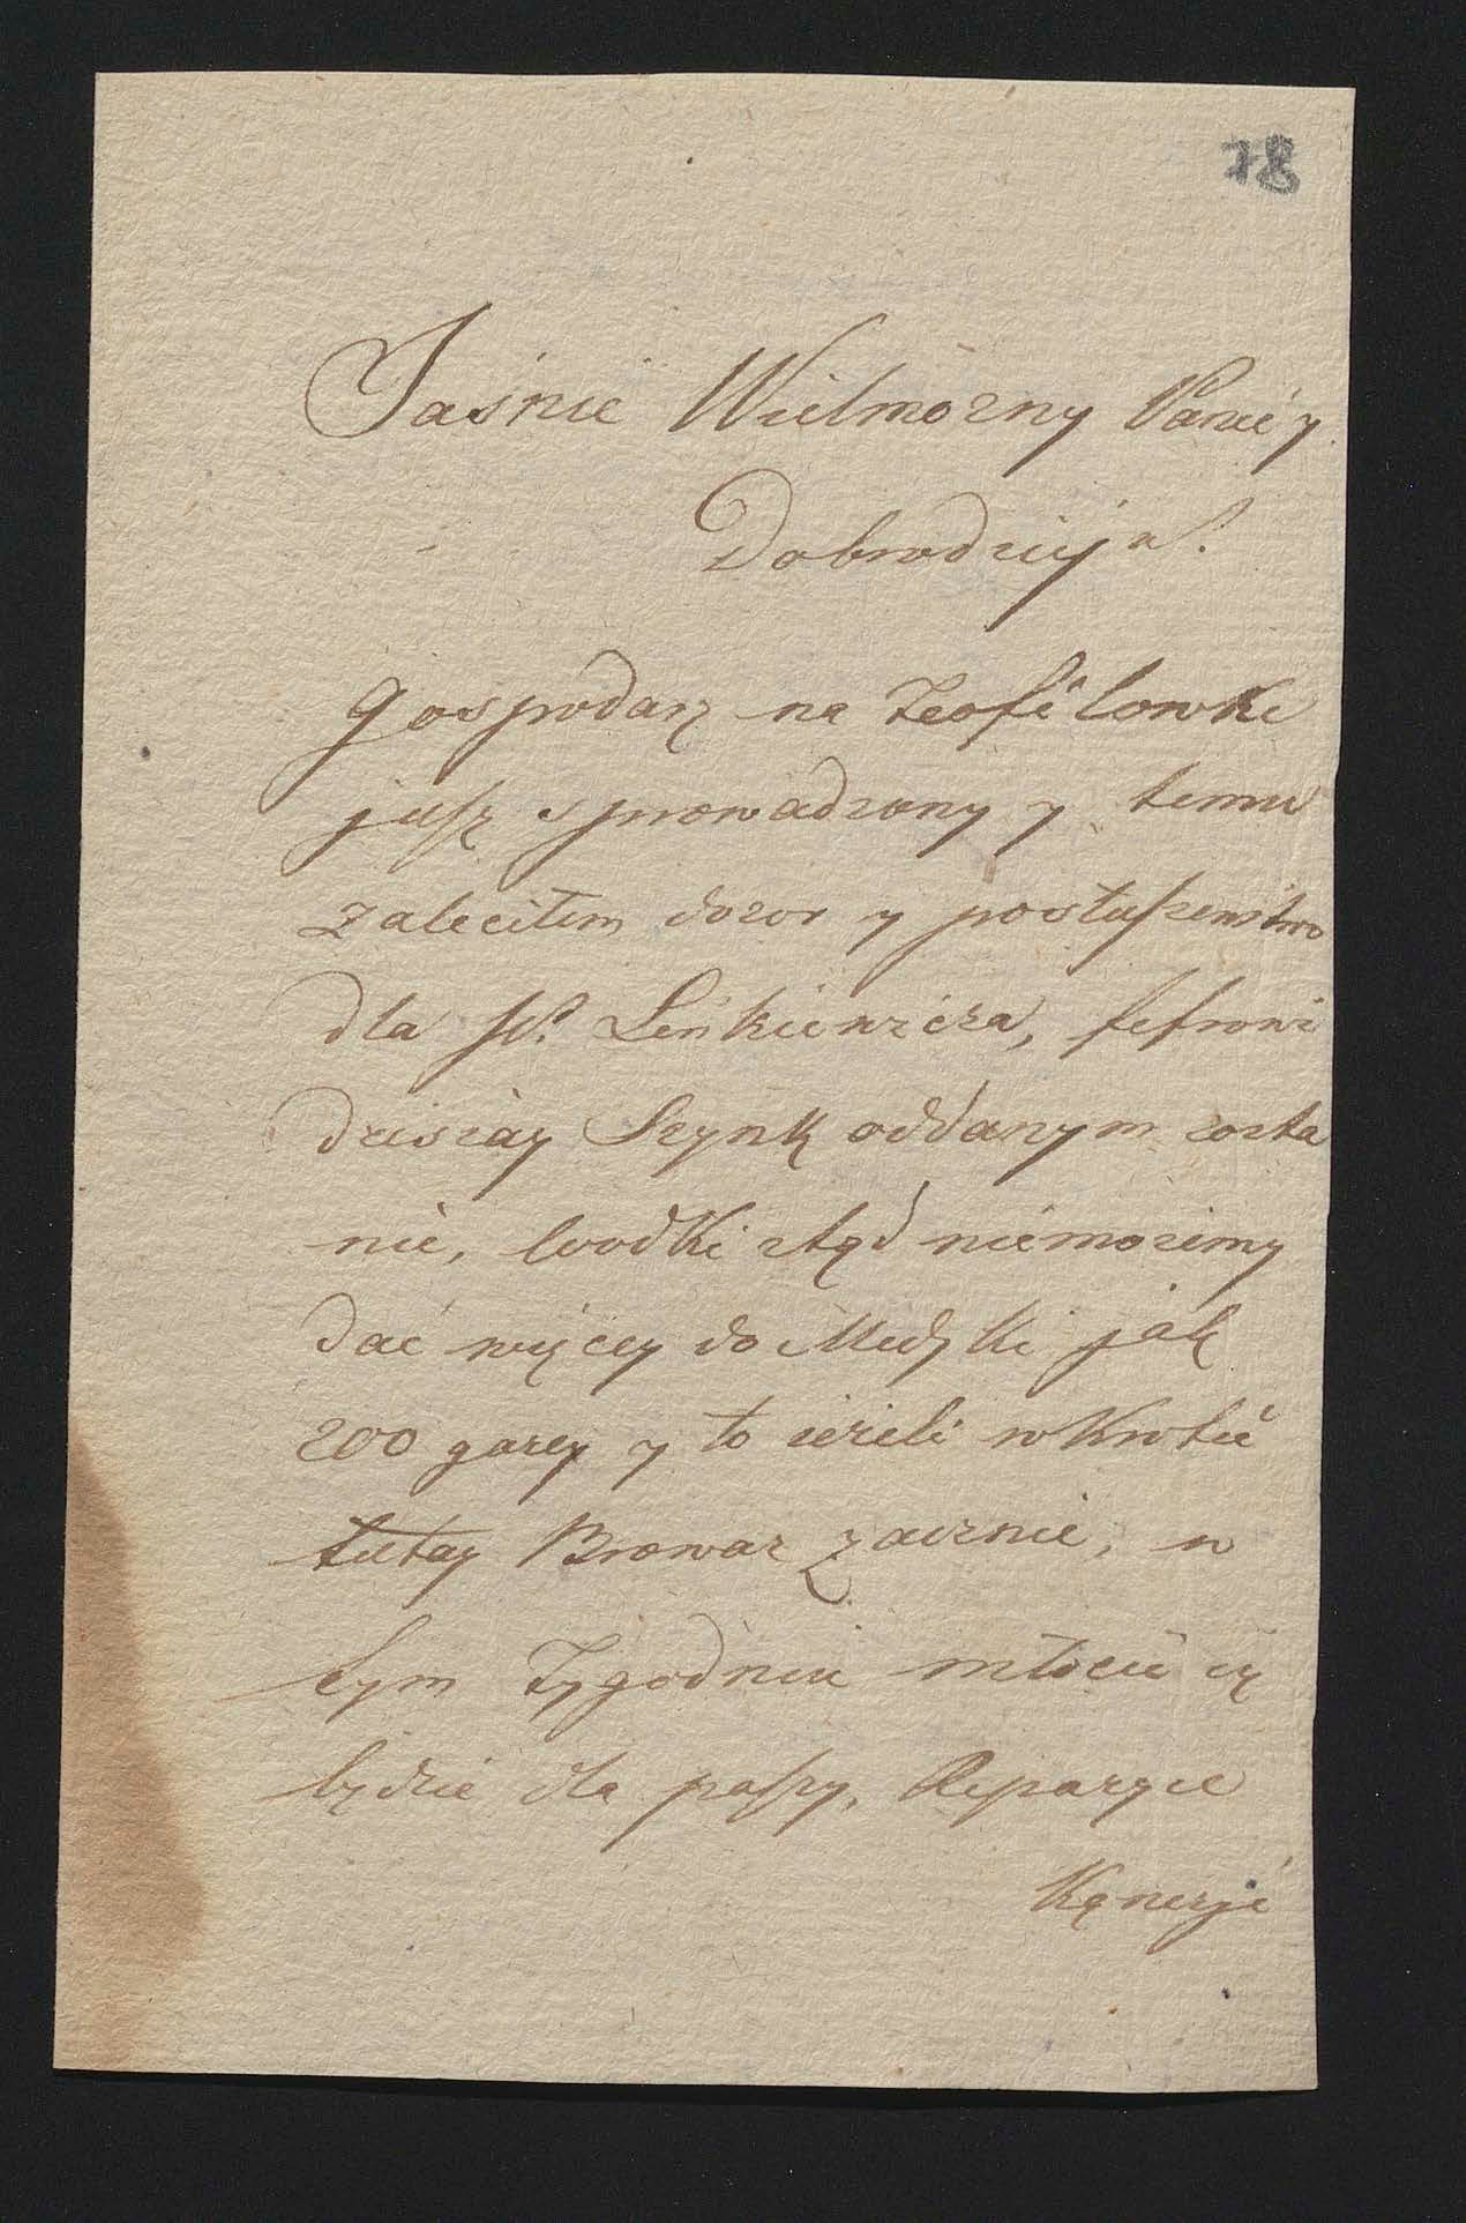 78
Jaśnie Wielmożny Panie y
Dobrodzieju.
gospodarz na Teofilowkę
jusz sprowadzony y temu
zaleciłem dozor y posłuszenstwo
dla JP. Leńkiewicza,
dzisiay Szynk oddanym zosta
nie, wodki ztąd niemożemy
dać więcey do Medyki jak
200 garcy y to ieżeli wkrotce
tutay Browar zacznie, w
tym Tygodniu młocić się
będzie dla paszy, Reparacye